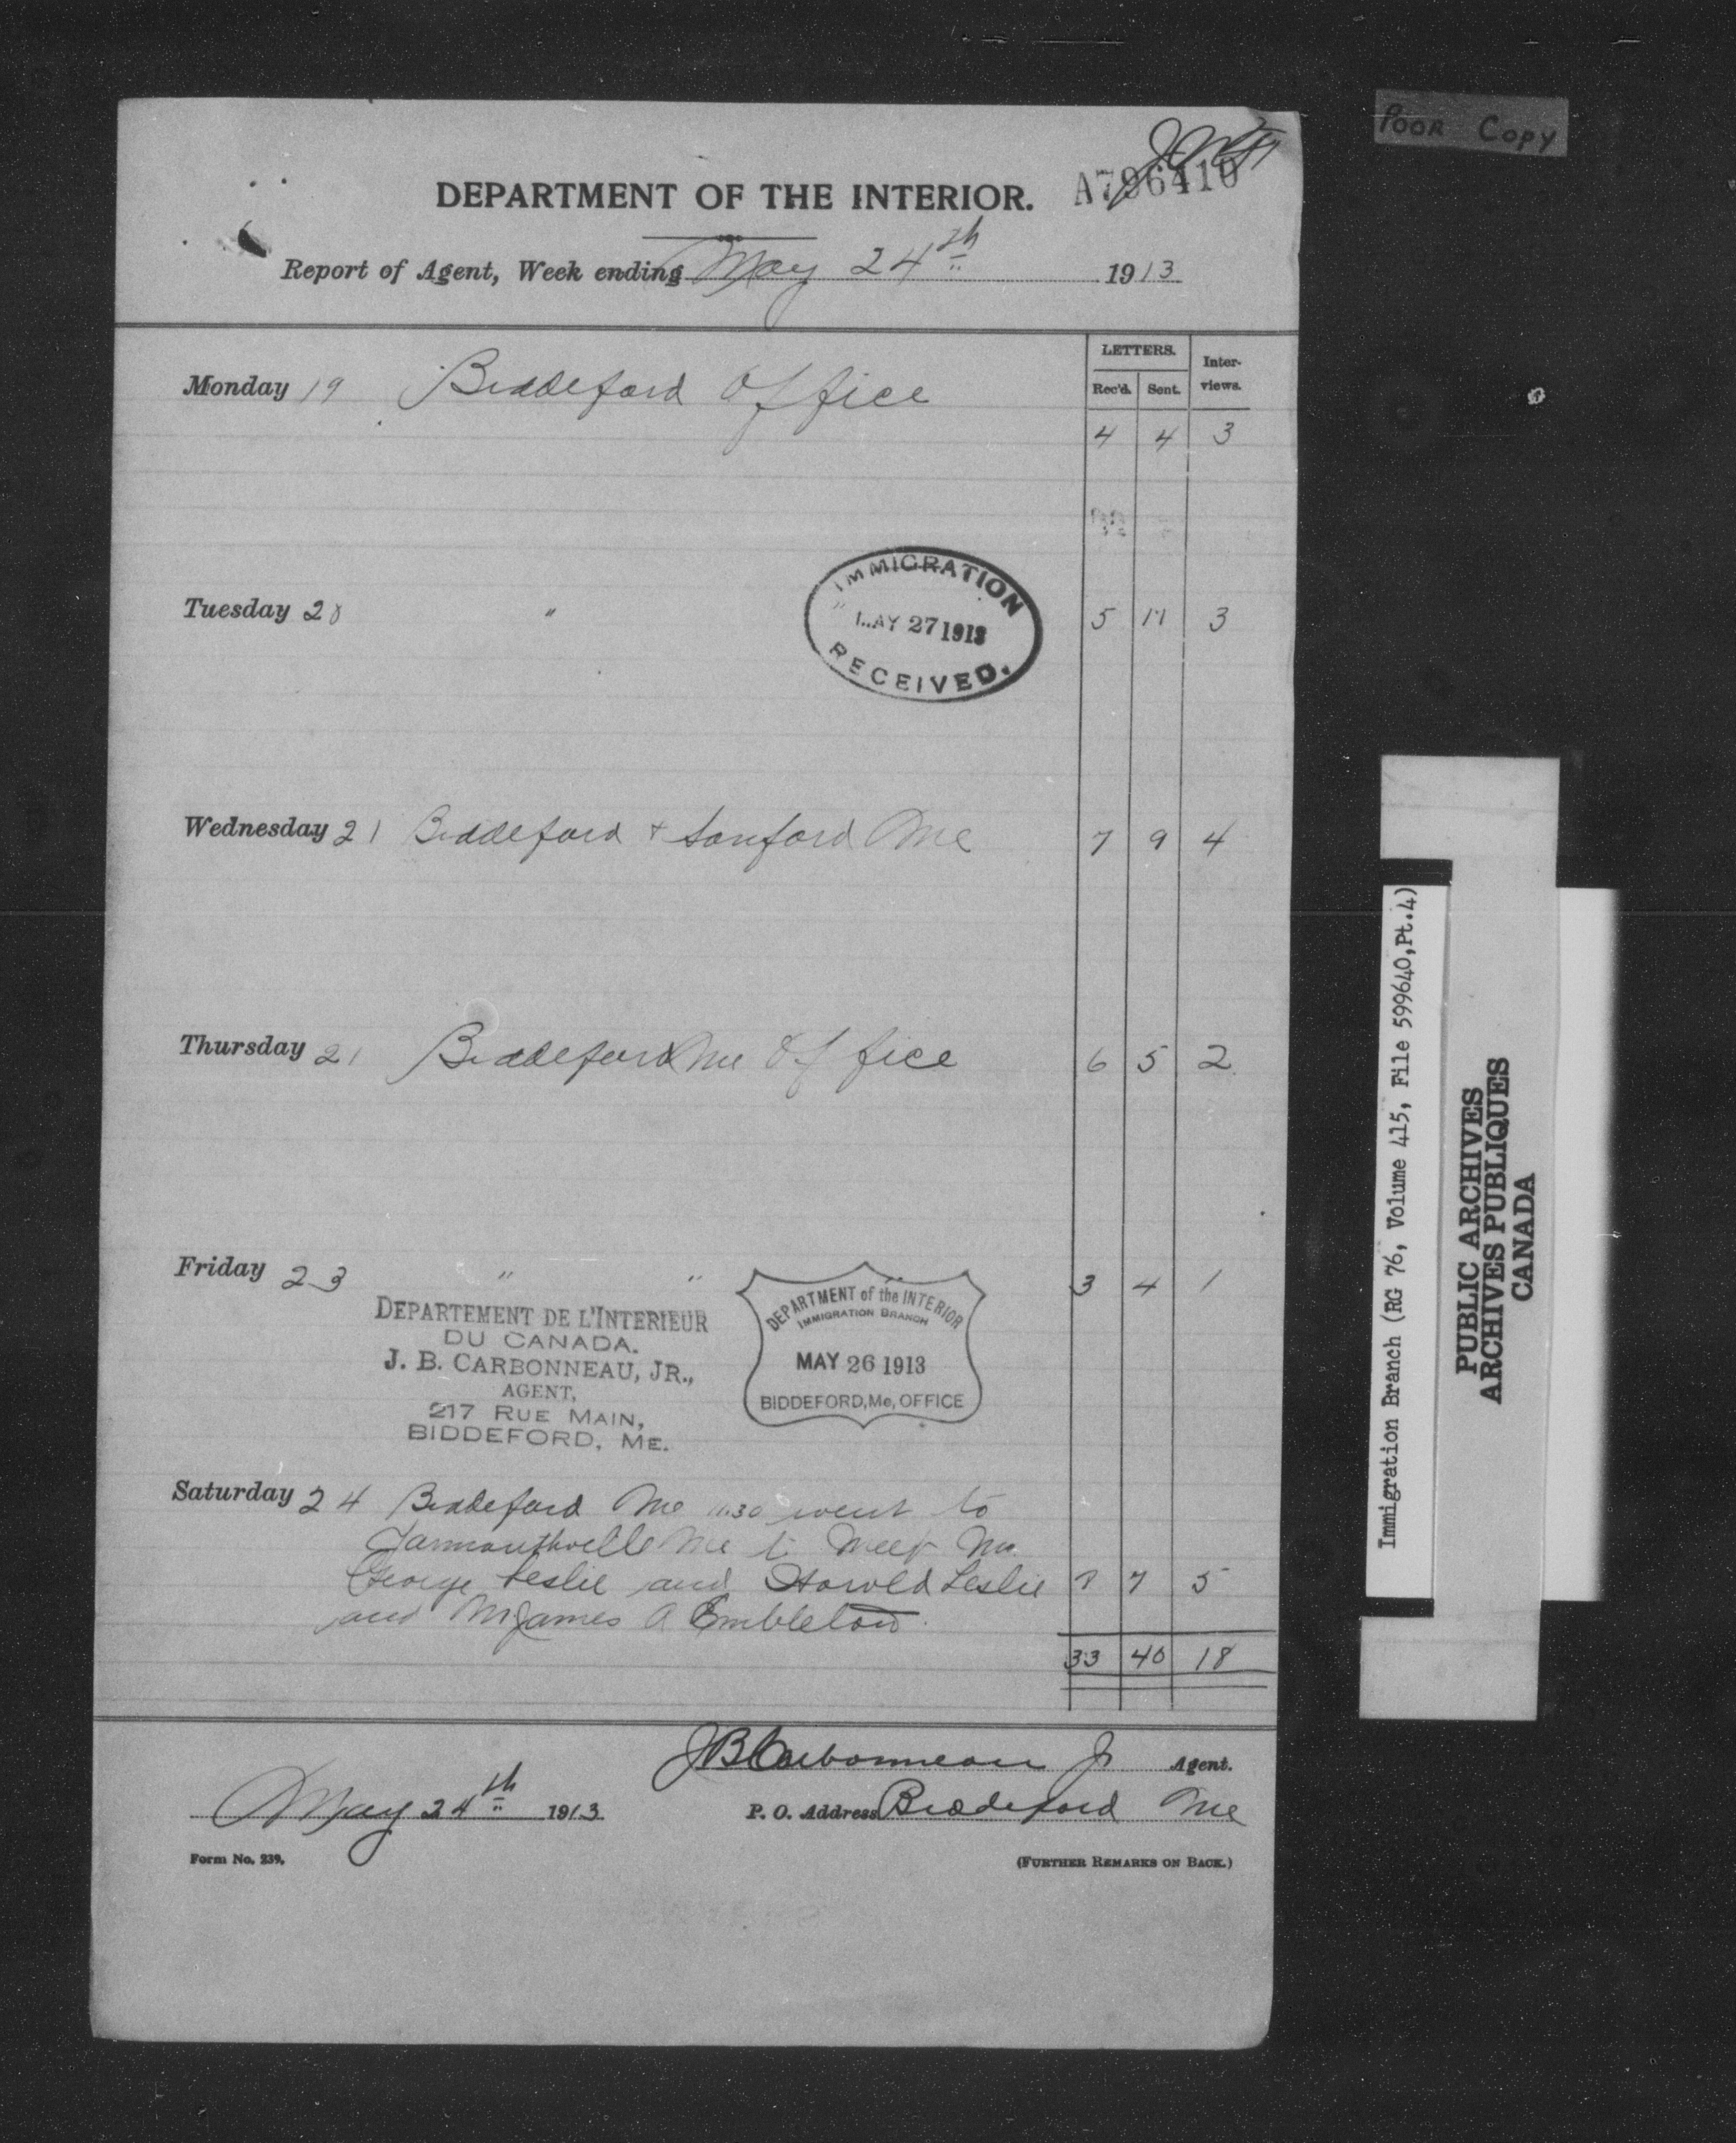 POOR COPY
A796410
DEPARTMENT OF THE INTERIOR.
Report of Agent, Week ending May 24th 1913
LETTERS. Inter-views.
Rec'd. Sent.
Monday 19 Biddeford Office
4 4 3
IMMIGRATION
MAY 27 1913
RECEIVED.
Tuesday 20 " 5 11 3
Wednesday 21 Biddeford + Sanford Me 7 9 4
Thursday 21 Biddeford Me Office 6 5 2
Friday 23 " " " 3 4 1
DEPARTEMENT DE L'INTERIEUR
DU CANADA.
J. B. CARBONNEAU, JR.,
AGENT,
217 RUE MAIN,
BIDDEFORD, ME.
DEPARTMENT of the INTERIOR
IMMIGRATION BRANCH
MAY 26 1913
BIDDEFORD, Me, OFFICE
Saturday 24 Biddeford Me 11.30 went to
Yarmouthville Me to Meet Mr.
George Leslie and Harold Leslie 8 7 5
and Mr James A Embleton.
33 40 18
J B Carbonneau Jr Agent.
May 24th 1913 P. O. Address Biddeford Me
Form No. 239. (FURTHER REMARKS ON BACK.)
Immigration Branch (RG 76, Volume 415, File 599640,Pt.4)
PUBLIC ARCHIVES
ARCHIVES PUBLIQUES
CANADA